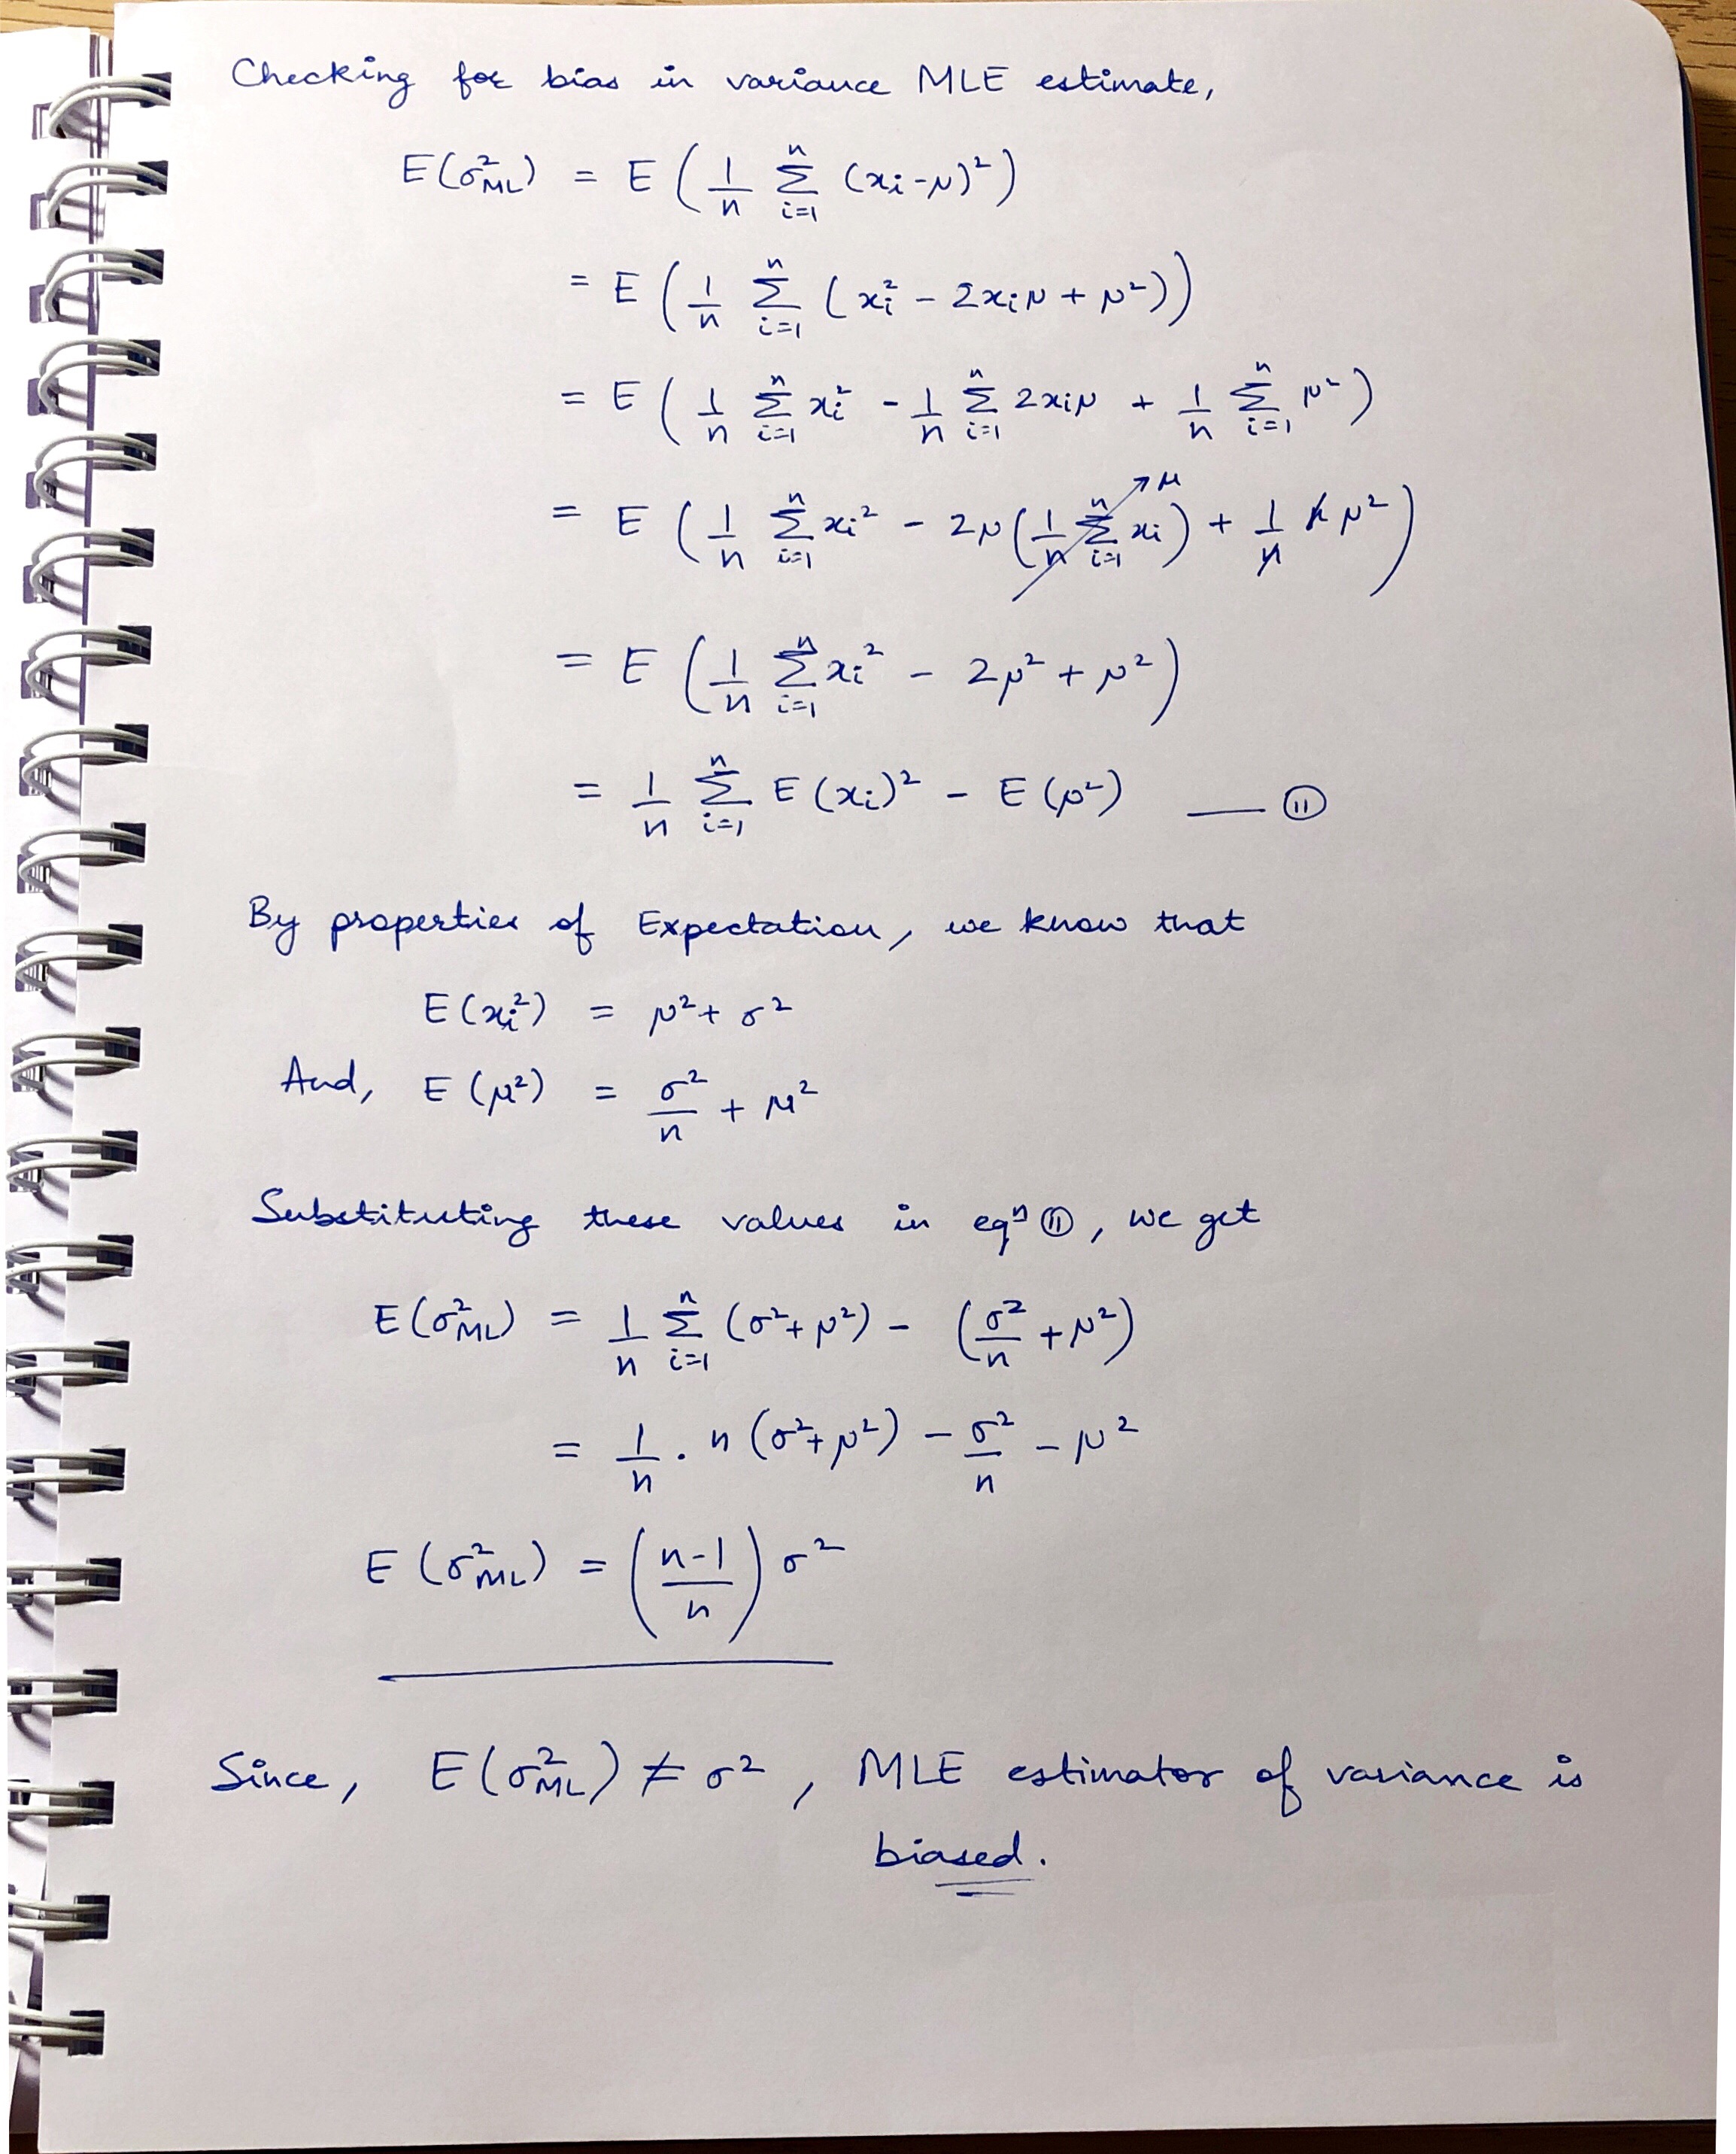 Checking for bias in variance MLE estimate,
E(σ²_ML) = E ( 1/n Σ_{i=1}^{n} (xi-μ)² )
= E ( 1/n Σ_{i=1}^{n} ( xi² - 2xiμ + μ² ) )
= E ( 1/n Σ_{i=1}^{n} xi² - 1/n Σ_{i=1}^{n} 2xiμ + 1/n Σ_{i=1}^{n} μ² )
= E ( 1/n Σ_{i=1}^{n} xi² - 2μ ( 1/n Σ_{i=1}^{n} xi ) ↗μ + 1/n n μ² )
= E ( 1/n Σ_{i=1}^{n} xi² - 2μ² + μ² )
= 1/n Σ_{i=1}^{n} E(xi)² - E(μ²) — ⑪
By properties of Expectation, we know that
E(xi²) = μ² + σ²
And, E(μ²) = σ²/n + μ²
Substituting these values in eqⁿ ⑪, we get
E(σ²_ML) = 1/n Σ_{i=1}^{n} (σ²+μ²) - (σ²/n + μ²)
= 1/n . n (σ²+μ²) - σ²/n - μ²
E(σ²_ML) = ( n-1/n ) σ²
Since, E(σ²_ML) ≠ σ², MLE estimator of variance is
biased.